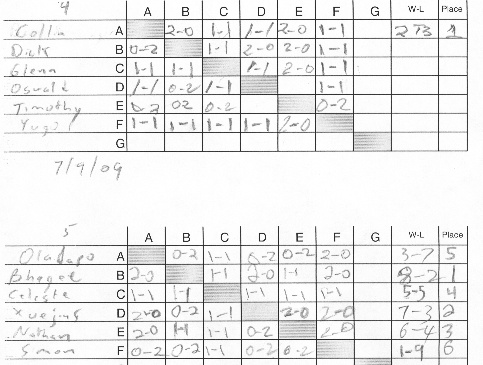 4
A B C D E F G W-L Place
Collin A 2-0 1-1 1-1 2-0 1-1 1
Dick B 0-2 1-1 2-0 2-0 1-1
Glenn C 1-1 1-1 1-1 2-0 1-1
Oswald D 1-1 0-2 1-1 1-1
Timothy E 0-2 02 0-2 0-2
F 1-1 1-1 1-1 1-1 2-0
G
7/9/09
5
A B C D E F G W-L Place
A 0-2 1-1 0-2 0-2 2-0 3-7 5
B 2-0 1-1 2-0 1-1 2-0 8-2 1
Celeste C 1-1 1-1 1-1 1-1 1-1 5-5 4
D 2-0 0-2 1-1 2-0 2-0 7-3 2
Nathan E 2-0 1-1 1-1 0-2 2-0 6-4 3
Simon F 0-2 0-2 1-1 0-2 0-2 1-9 6